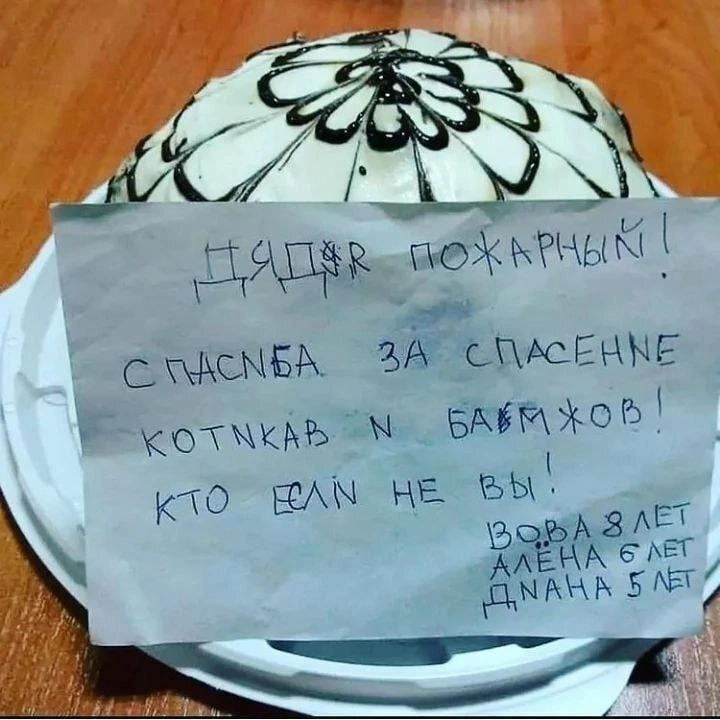 ДЯДЯ ПОЖАРНЫЙ!
СПАСИБА ЗА СПАСЕНИЕ
КОТИКАВ И БАМЖОВ!
КТО ЕСЛИ НЕ ВЫ!
ВОВА 8 ЛЕТ
АЛЁНА 6 ЛЕТ
ДИАНА 5 ЛЕТ